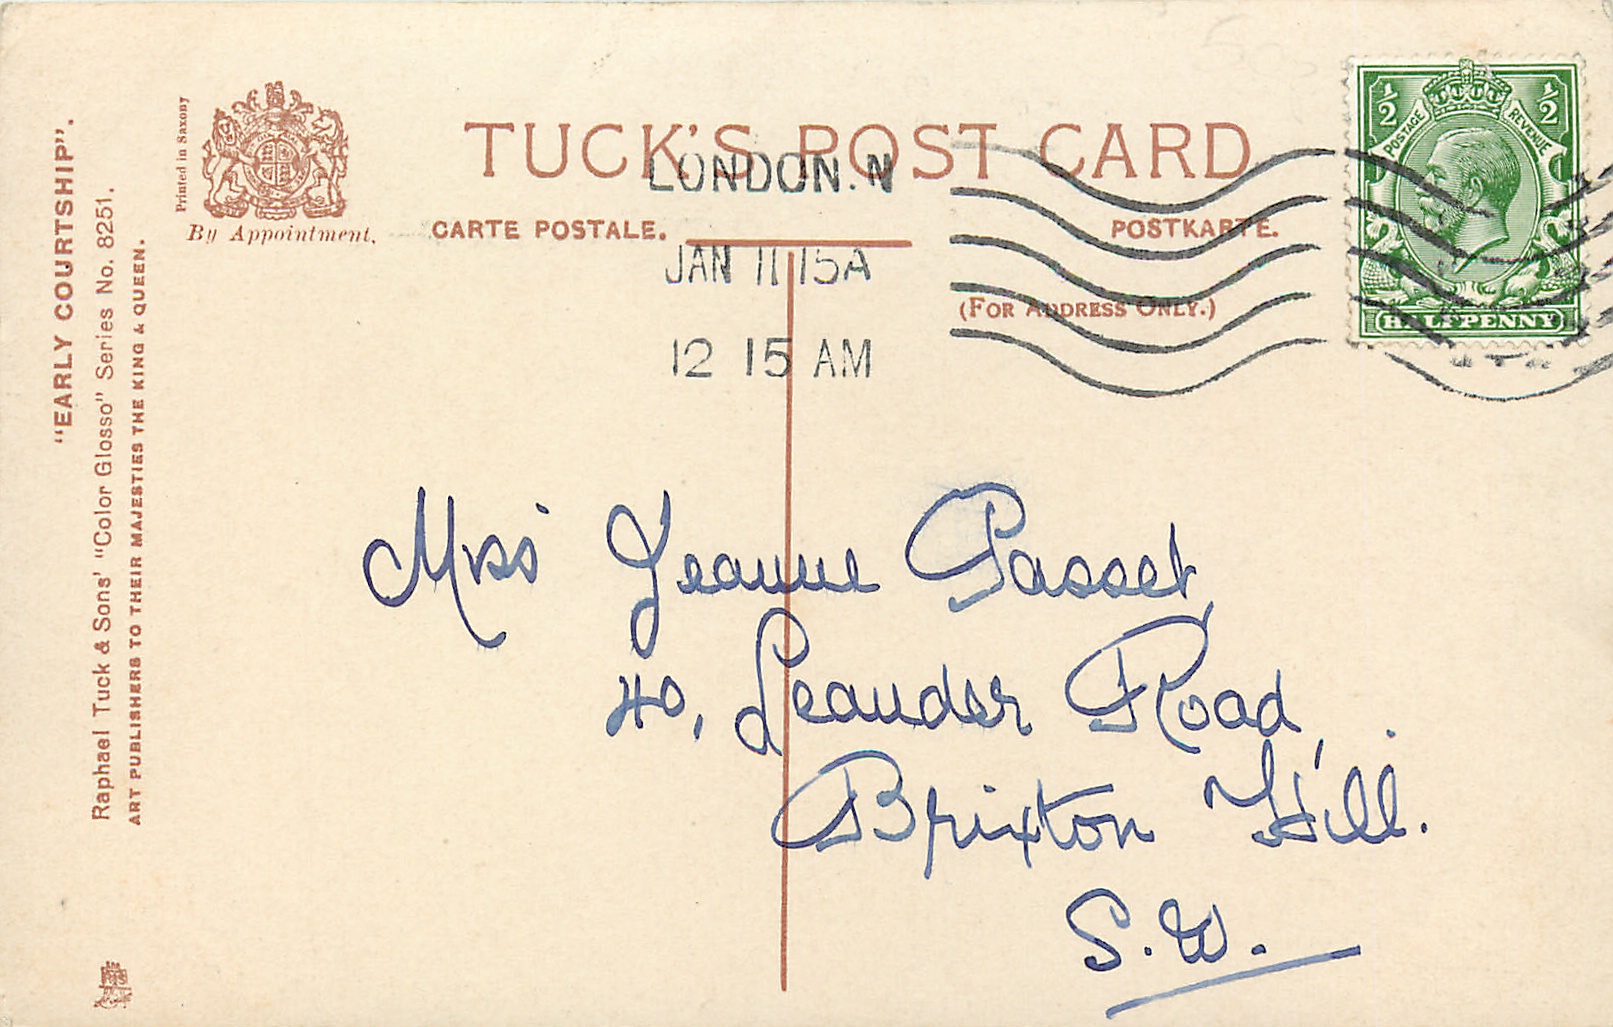 "EARLY COURTSHIP".
Raphael Tuck & Sons' "Color Glosso" Series No. 8251.
ART PUBLISHERS TO THEIR MAJESTIES THE KING & QUEEN.
Printed in Saxony
By Appointment.
TUCK'S POST CARD
CARTE POSTALE.
POSTKARTE.
(FOR ADDRESS ONLY.)
LONDON. N
JAN 11 15A
12 15 AM
½ ½
POSTAGE REVENUE
HALFPENNY
Miss Jeanne Gasset,
40, Leander Road,
Brixton Hill.
S.W.